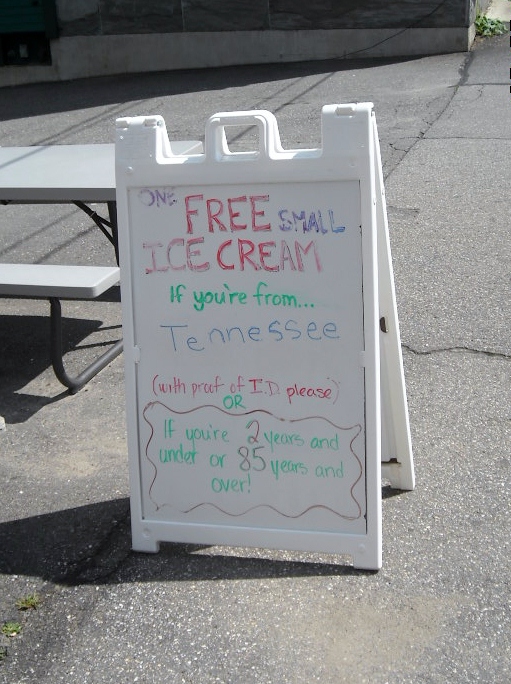 ONE FREE SMALL
ICE CREAM
If you're from...
Tennessee
(with proof of I.D. please)
OR
If you're 2 years and
under or 85 years and
over!